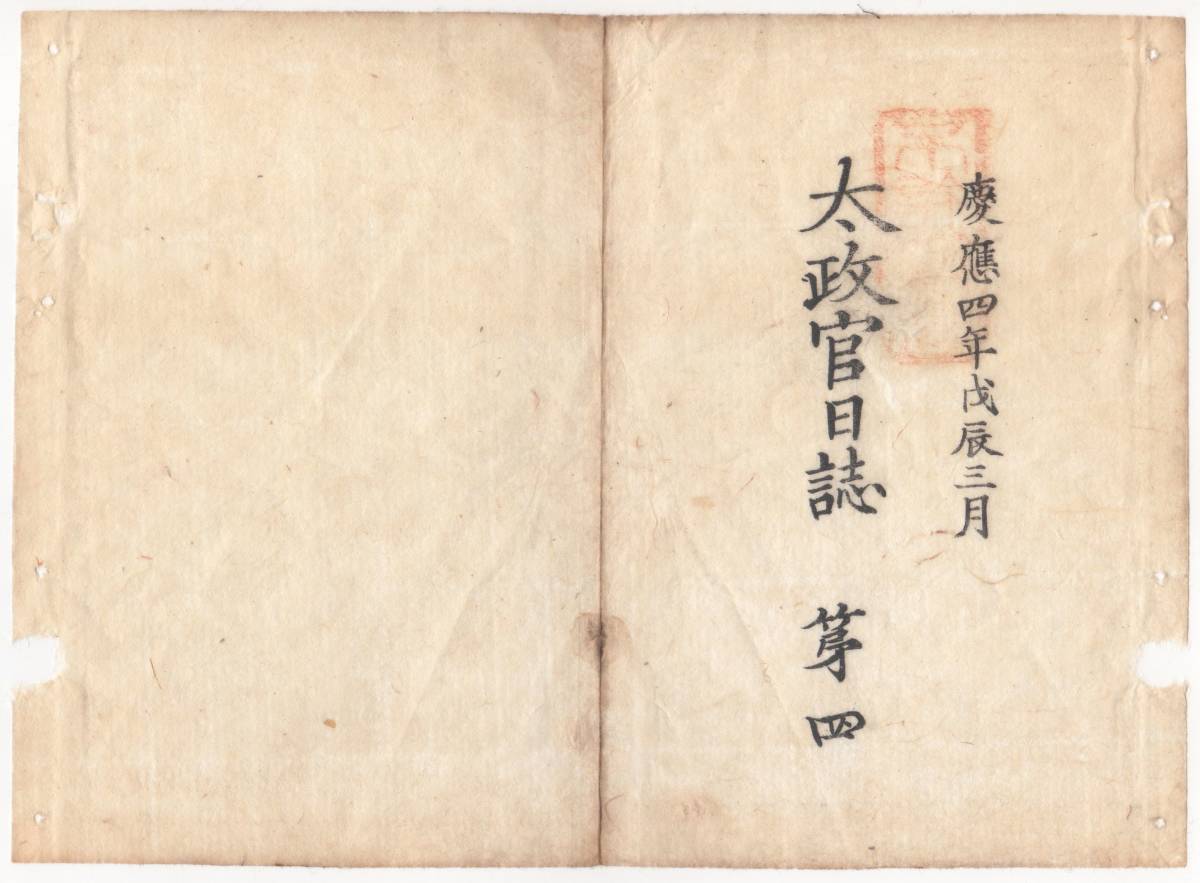 慶應四年戊辰三月
太政官日誌 苐四